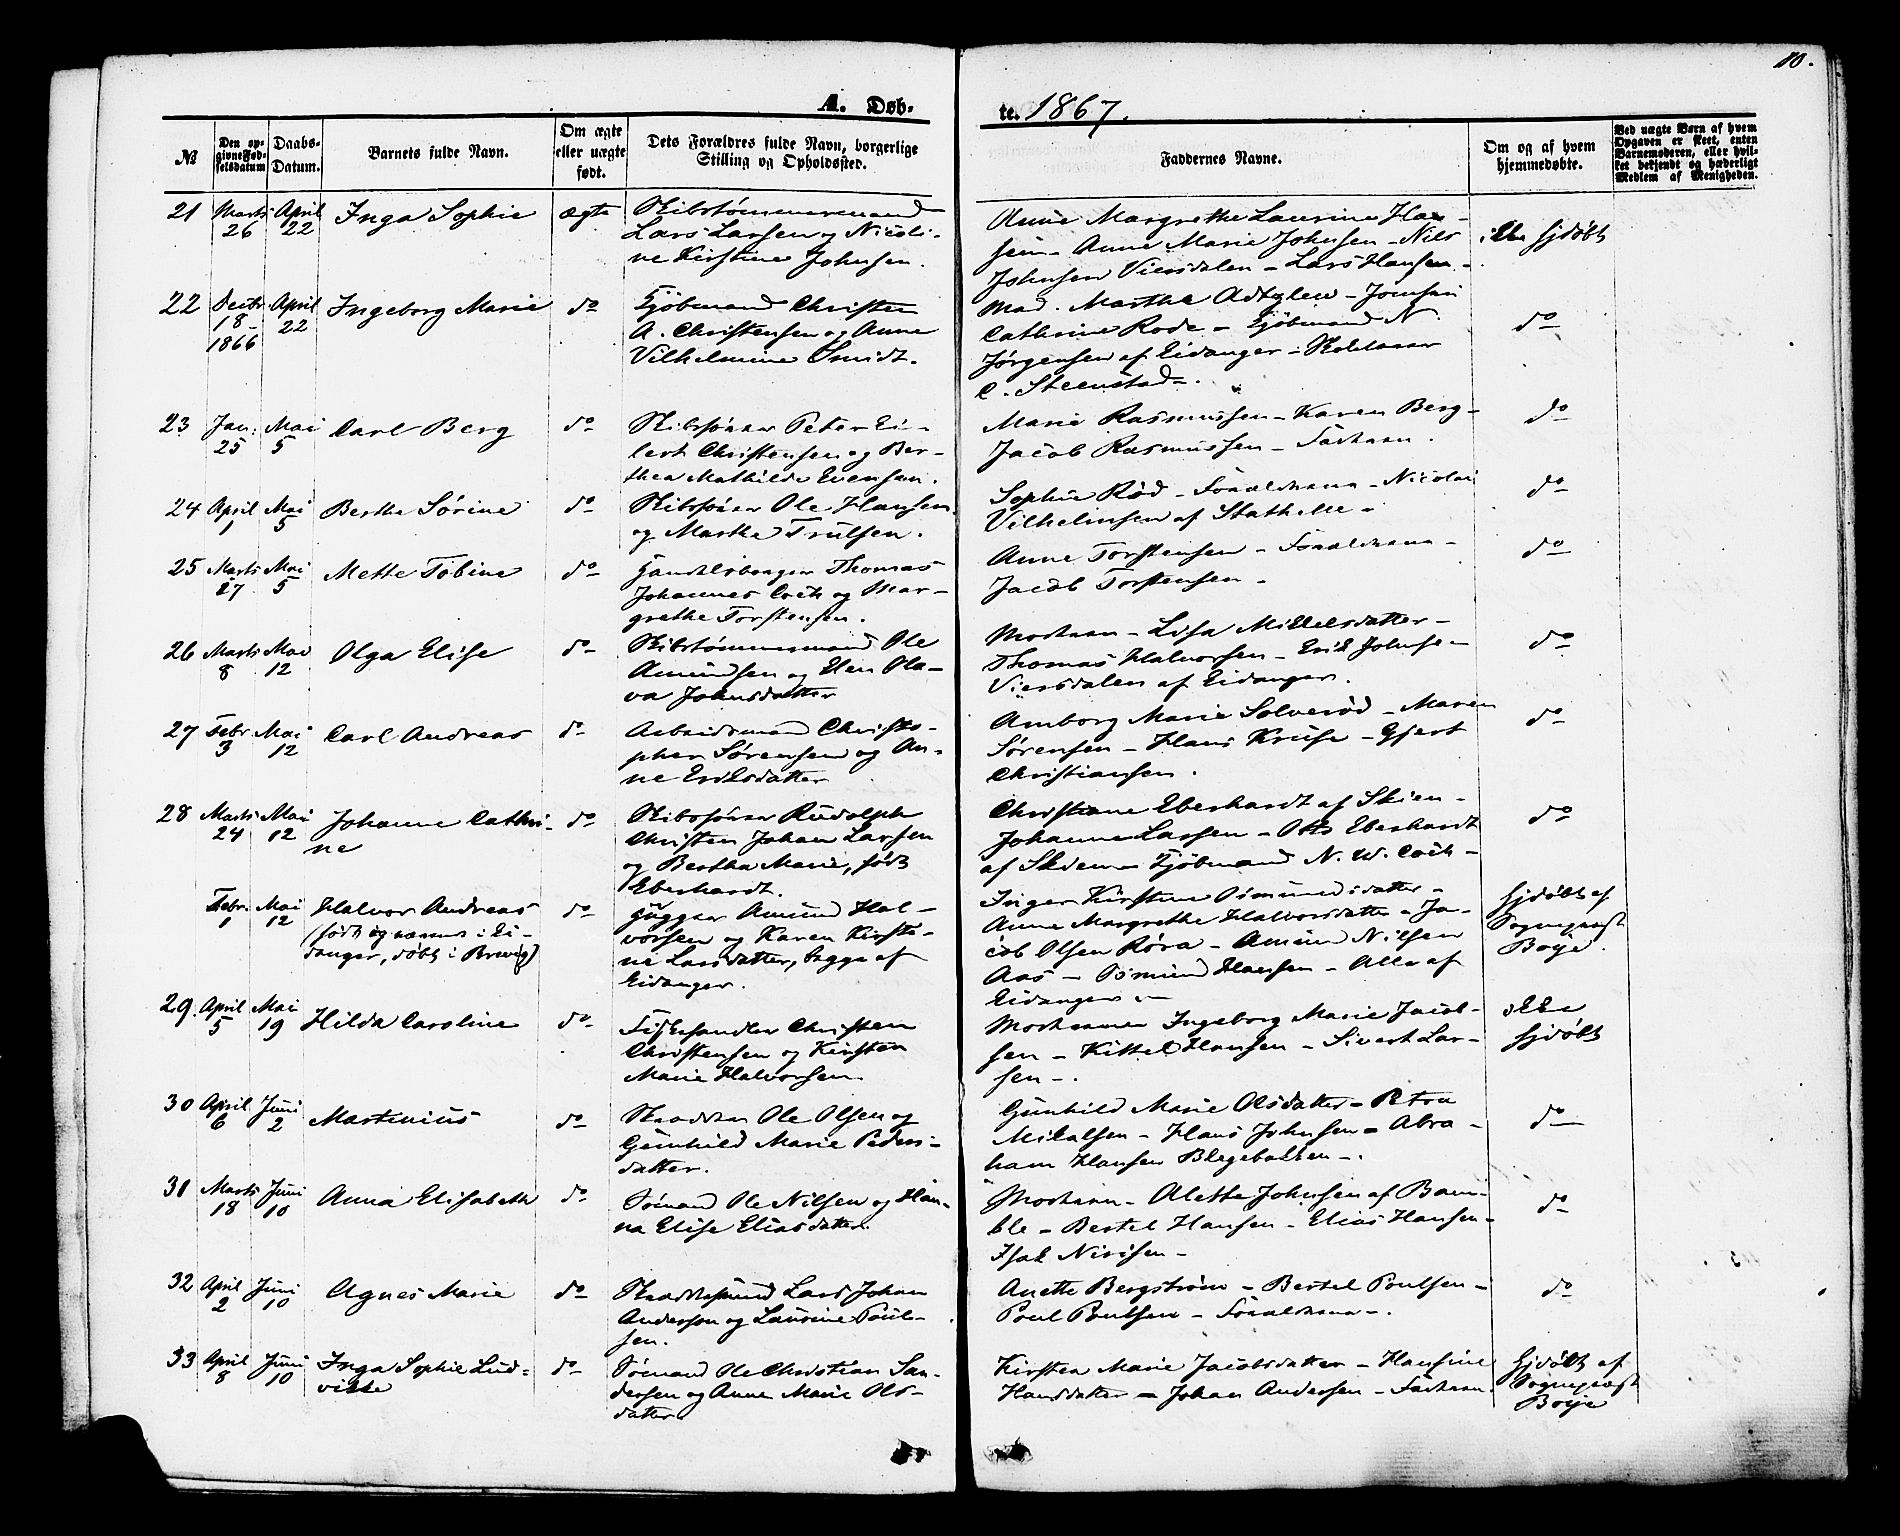 10.
A. Døb-
te. 1867.
№
Den op-
givne Fød-
selsdatum
Daabs-
Datum.
Barnets fulde Navn.
Om ægte
eller uægte
født.
Dets Forældres fulde Navn, borgerlige
Stilling og Opholdssted.
Faddernes Navne.
Om og af hvem
hjemmedøbte.
Ved uægte Børn af hvem
Opgaven er skeet, enten
Barnemoderen, eller hvil-
ket bekjendt og hæderligt
Medlem af Menigheden.
21 Marts 26 April 22 Inga Sophie ægte
Skibstømmermand
Lars Larsen og Nicoli-
ne Kirstine Johnsen.
Anne Margrethe Laurine Han-
sen - Anne Marie Johnsen - Nils
Johnsen Viersdalen - Lars Hansen -
ikke hjdøbt
22 Decbr 18 - 1866 April 22 Ingeborg Marie do
Kjøbmand Christen
A. Christensen og Anne
Vilhelmine Smidt.
Mad. Marthe - Jomfru
Cathrine Rode - Kjøbmand N.
Jørgensen af Eidanger -
C. Steenstad -.
do
23 Jan. 25 Mai 5 Carl Berg do
Skibsfører Peter Ei-
lert Christensen og Ber-
thea Mathilde Evensen.
Marie Rasmussen - Karen Berg -
Jacob Rasmussen - Faderen.
do
24 April 1 Mai 5 Berthe Sørine do
Skibsfører Ole Hansen
og Marthe Trulsen.
Sophie Rød - Forældrene - Nicolai
Vilhelmsen af Stathelle -
do
25 Marts 27 Mai 5 Mette Tobine do
Handelsborger Thomas
Johannes Coch og Mar-
grethe Torstensen.
Anne Torstensen - Forældrene -
Jacob Torstensen -
do
26 Marts 8 Mai 12 Olga Elise do
Skibstømmermand Ole
Amundsen og Elen Ola-
va Johnsdatter
Moderen - Lisa Mikkelsdatter -
Thomas Halvorsen - Erik Johnse -
Viersdalen af Eidanger.
do
27 Febr 3 Mai 12 Carl Andreas do
Arbeidsmand Christo-
pher Sørensen og An-
ne Eriksdatter
Amborg Marie Solverød - Maren
Sørensen - Hans Kruse - Gjert
Christiansen.
do
28 Marts 24 Mai 12 Johanne Cathri-
ne do
Skibsfører Rudolph
Christen Johan Larsen
og Bertha Marie, født
Eberhardt.
Christiane Eberhardt af Skien -
Johanne Larsen - Otto Eberhardt
af Skien - Kjøbmand N. W. Coch -
do
Febr. 1 Mai 12 Halvor Andreas
(født og nævnt i Ei-
danger, døbt i Brevig) do
Hugger Amund Hal-
vorsen og Karen Kirsti-
ne Larsdatter, begge af
Eidanger.
Inger Kirstine Osmundsdatter -
Anne Margrethe Halvorsdatter - Ja-
cob Olsen Røra - Amund Nilsen
Aas - Osmund Hansen - Alle af
Eidanger -
hjdøbt af
Sognepræst
Boye.
29. April 5 Mai 19 Hilda Caroline do
Fiskehandler Christen
Christensen og Kirsten
Marie Halvorsen
Moderen Ingeborg Marie Jacob-
sen - Kittel Hansen - Sivert Lar-
sen -.
ikke
hjdøbt
30 April 6 Juni 2 Martinius do
Skrædder Ole Olsen og
Gunhild Marie Peders-
datter.
Gunhild Marie Olsdatter - Petra
Mikalsen - Hans Johnsen - Abra-
ham Hansen Blegebakken -.
do
31 Marts 18 Juni 10 Anna Elisabeth do
Sømand Ole Nilsen og Han-
na Elise Eliasdatter.
Moderen - Alette Johnsen af Bam-
ble - Bertel Hansen - Elias Hansen -
Isak Nirisen -
do
32 April 2 Juni 10 Agnes Marie do
Skræddersvend Lars Johan
Anderson og Laurine Poul-
sen.
Anette Bergstrøm - Bertel Poulsen -
Poul Poulsen - Forældrene -.
do
33 April 8 Juni 10 Inga Sophie Lud-
vikke do
Sømand Ole Christian San-
dersen og Anne Marie Ols-
datter
Kirsten Marie Jacobsdatter - Hansine
Hansdatter - Johan Andersen - Faderen.
Hjdøbt af
Sognepræst
Boye